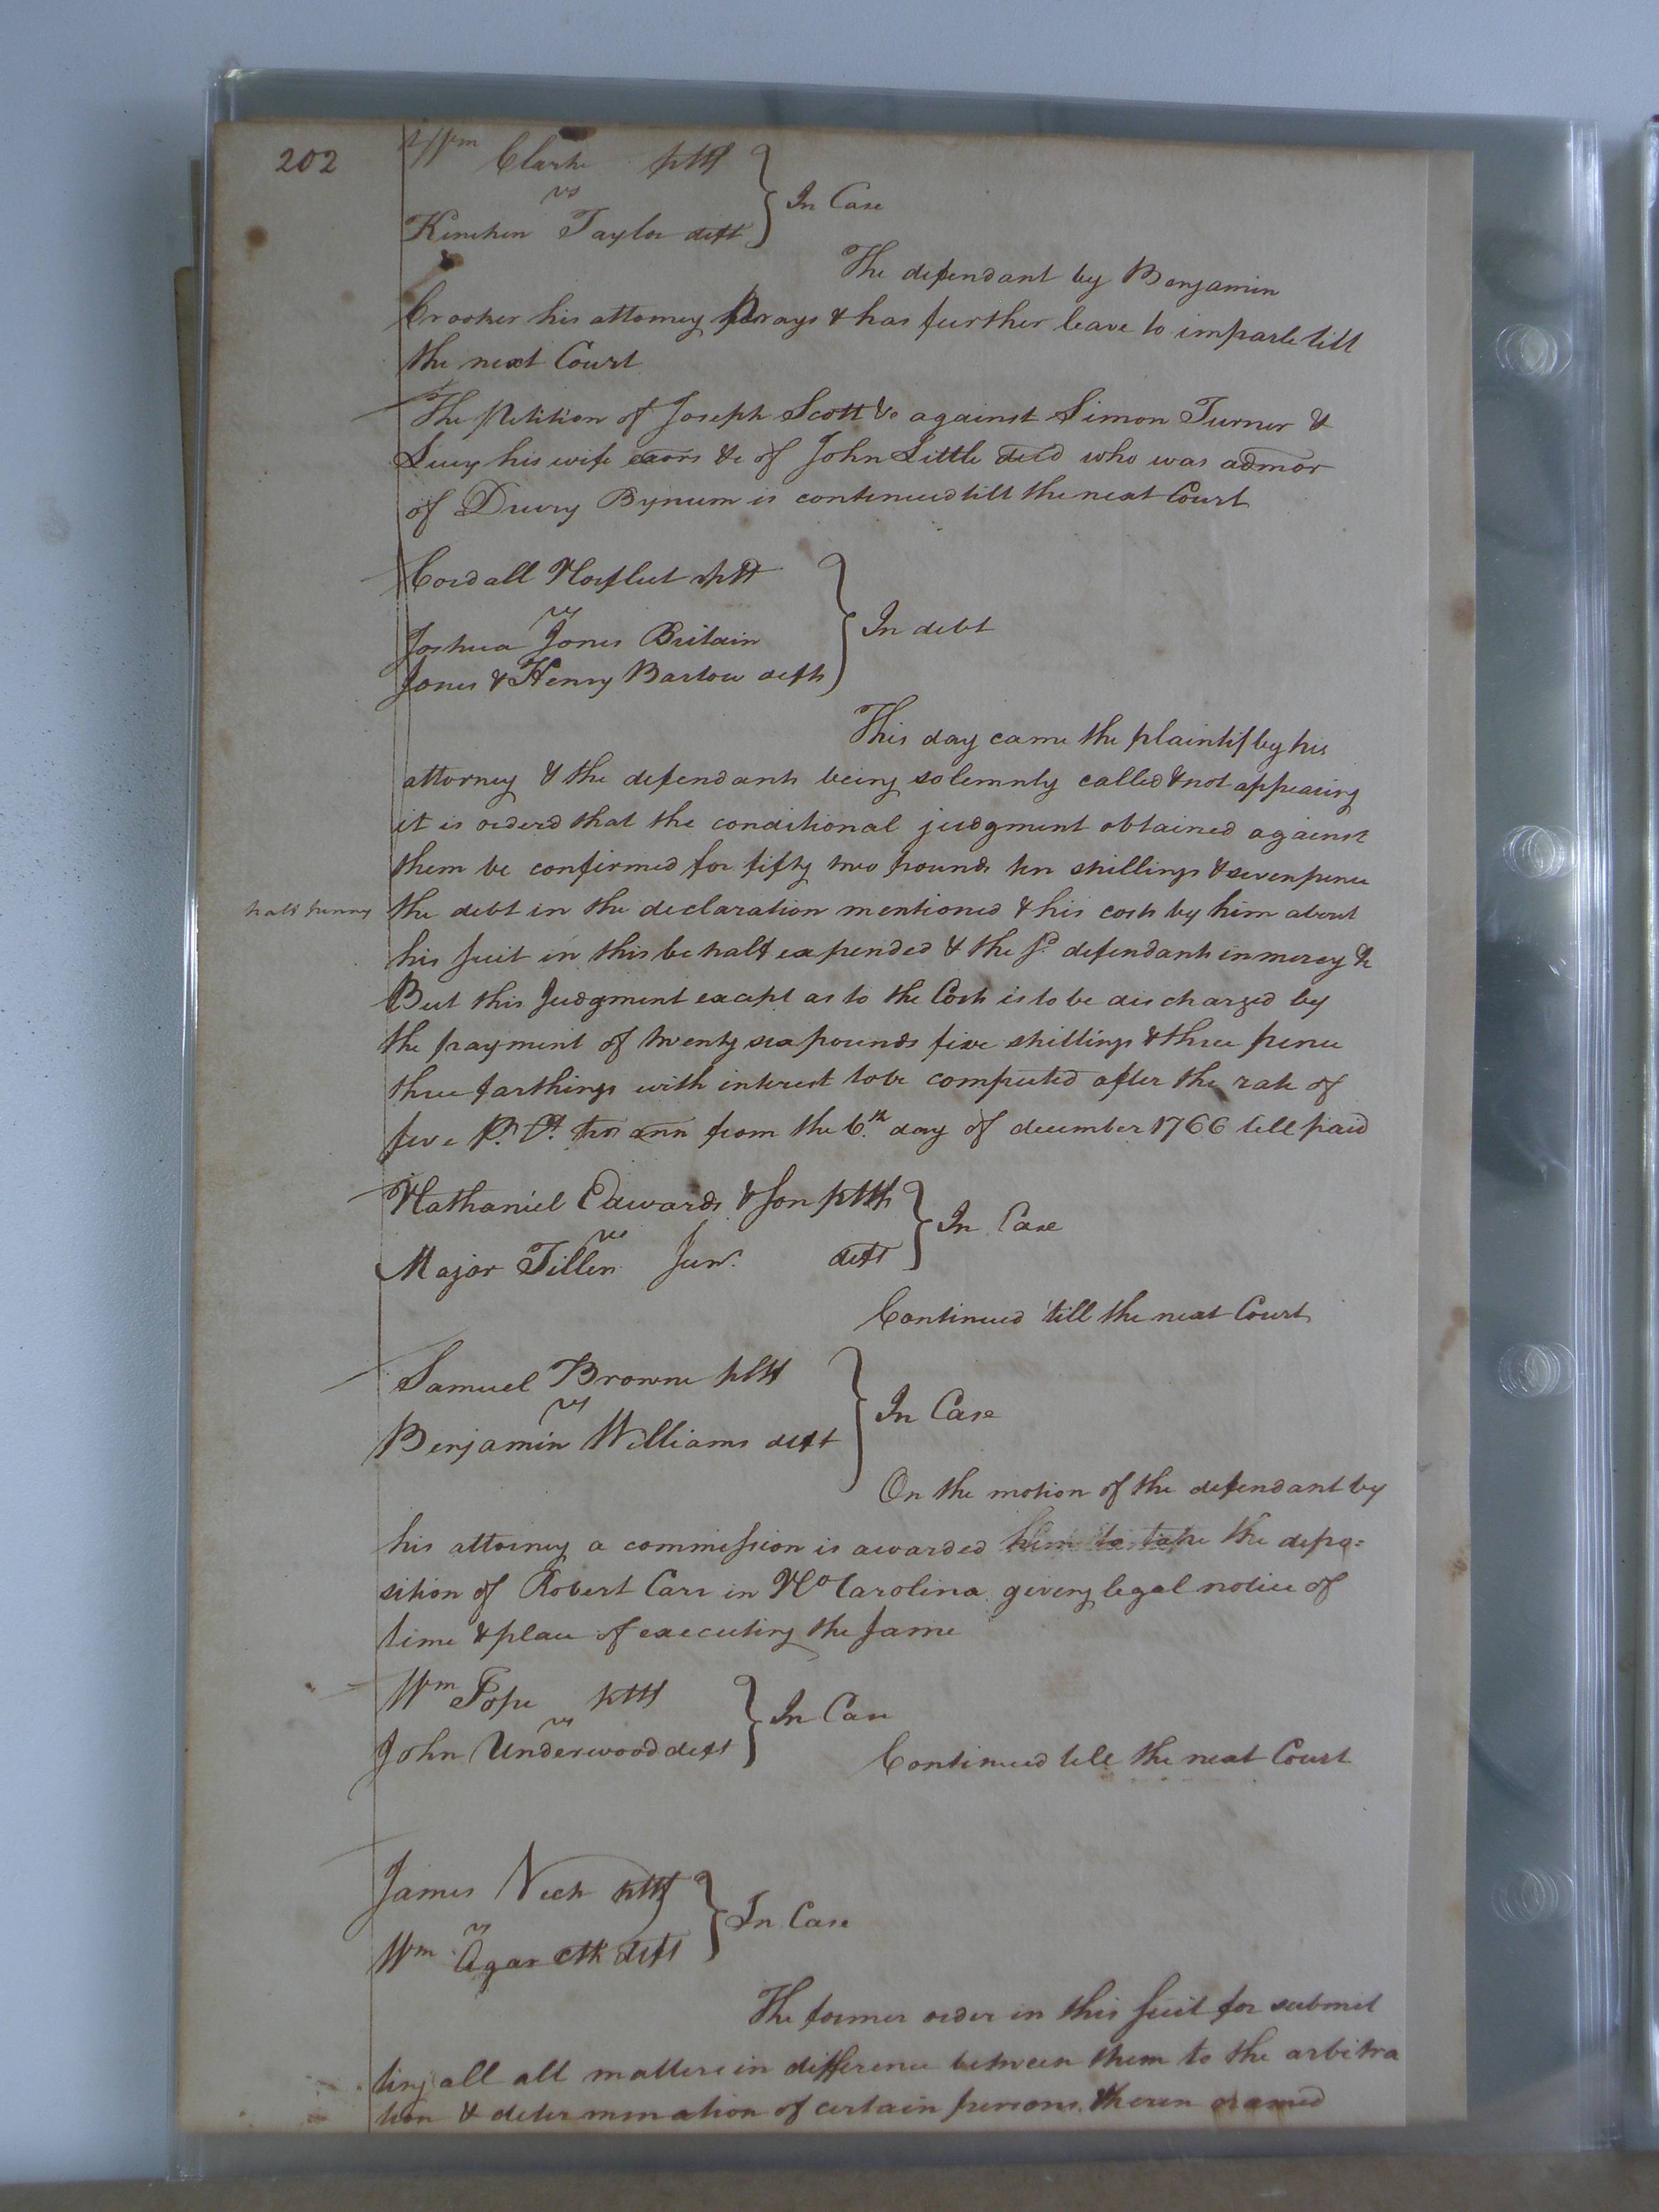 202
Wm Clarke pltf
vs
Kinchen Taylor deft
In Case
The defendant by Benjamin
Crooker his attorney Prays & has further leave to imparle till
the next Court
The Petition of Joseph Scott &c against Simon Turner &
Lucy his wife exors &c of John Little decd who was admor
of Drury Bynum is continued till the next Court
Cordall Norfleet pltf
vs
Joshua Jones Britain
Jones & Henry Barlow defts
In debt
This day came the plaintif by his
attorney & the defendants being solemnly called & not appearing
it is orderd that the conditional judgment obtained against
them be confirmed for fifty two pounds ten shillings & seven pence
half penny
the debt in the declaration mentioned & his costs by him about
his suit in this behalf expended & the sd defendants in mercy &c
But this Judgment except as to the Costs is to be discharged by
the payment of twenty six pounds five shillings & three pence
three farthings with interest to be computed after the rate of
five P. Ct. per ann from the 6.th day of december 1766 till paid
Nathaniel Edwards & Son pltfs
vs
Major Tiller Junr. deft
In Case
Continued 'till the next Court
Samuel Browne pltf
vs
Benjamin Williams deft
In Case
On the motion of the defendant by
his attorney a commission is awarded him to take the depo=
sition of Robert Carr in No Carolina giving legal notice of
time & place of executing the same
Wm Pope pltf
vs
John Underwood deft
In Case
Continued till the next Court
James Vech pltf
vs
Wm Agar Clk deft
In Case
The former order in this suit for submit
ting all all matters in difference between them to the arbitra
tion & determination of certain persons therein named